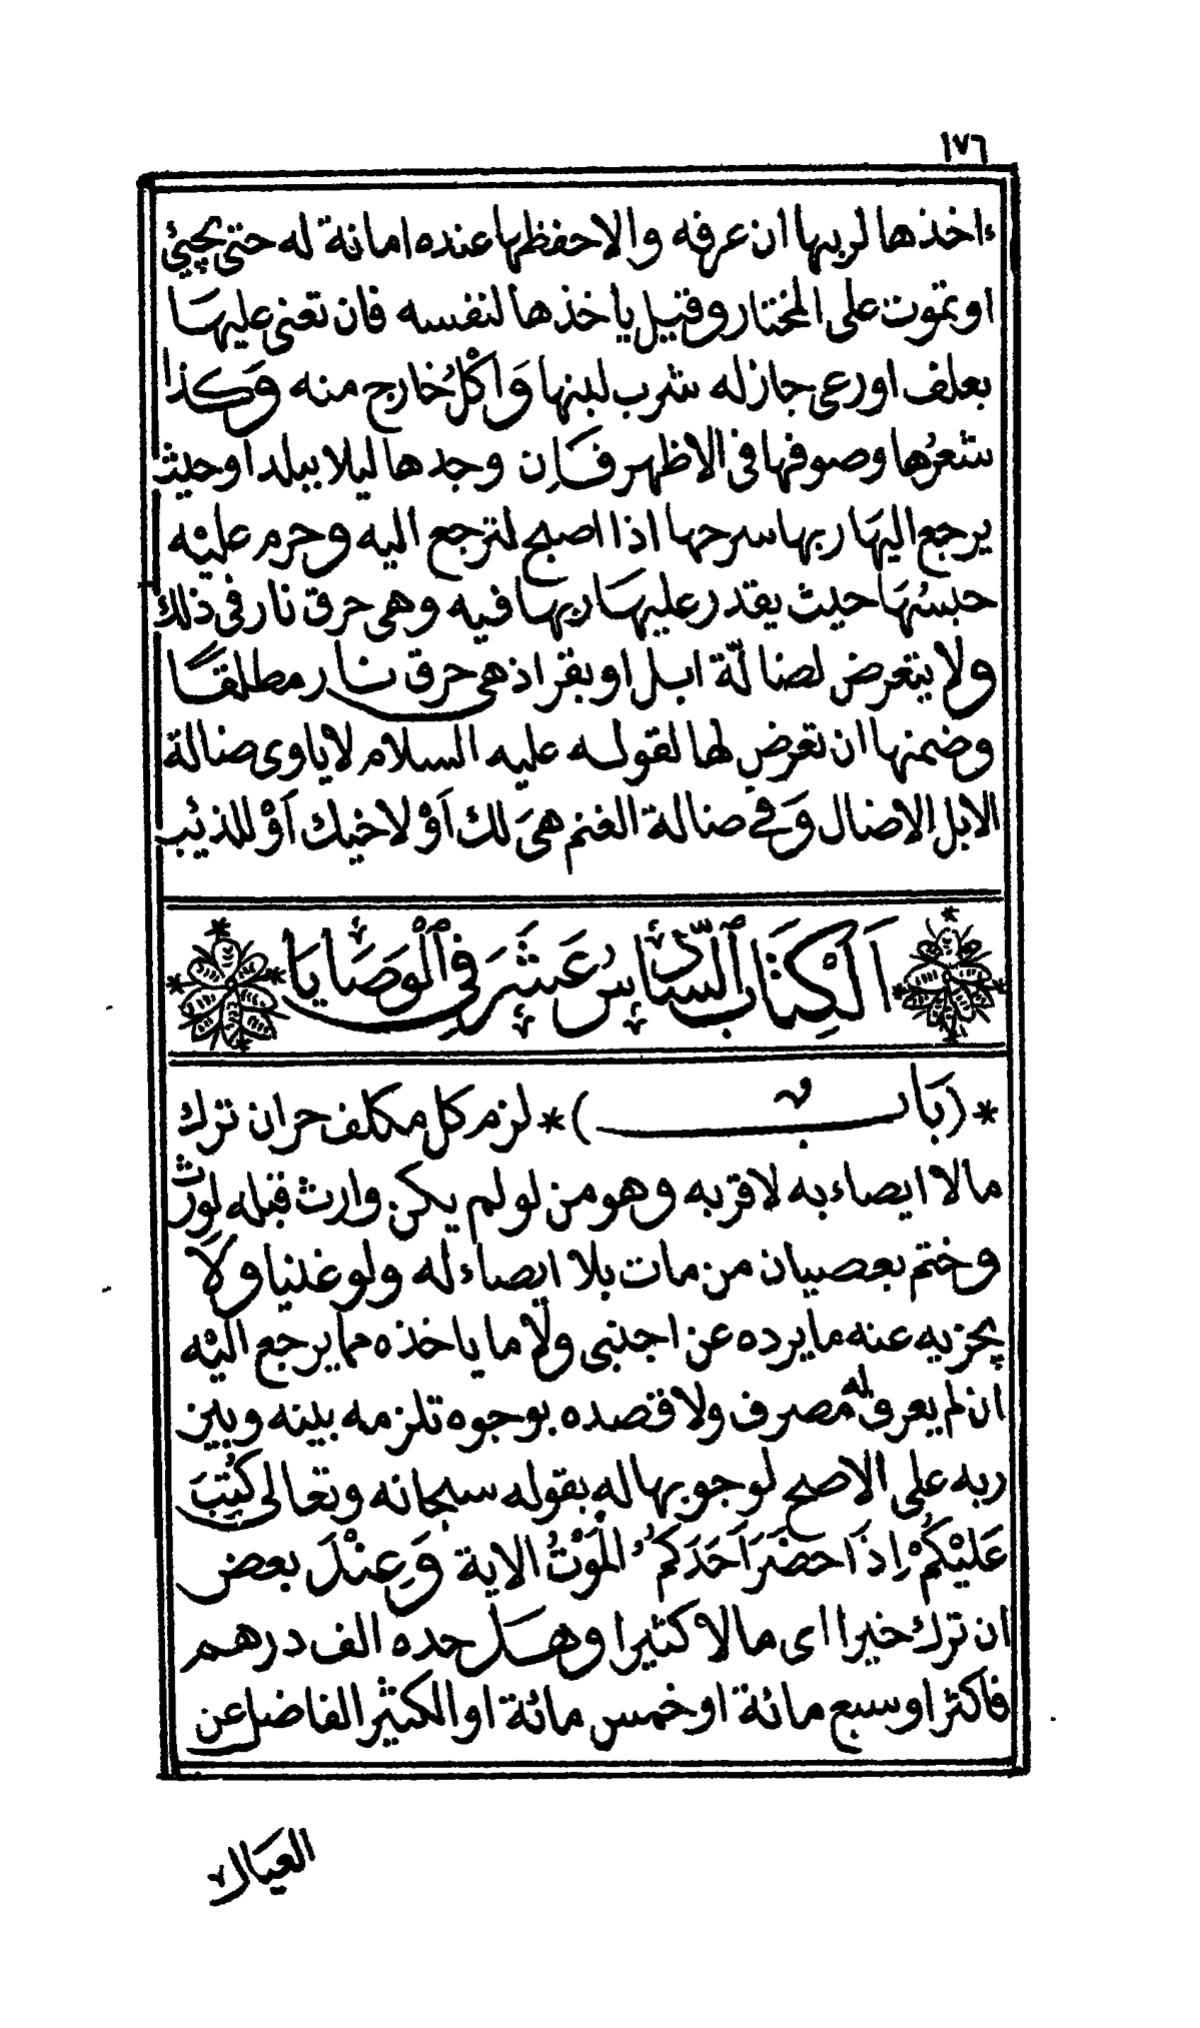 ١٧٦
ءاخذها لربها ان عرفه والاحفظها عنده امانة له حتى يجيئ
او تموت على المختار وقيل ياخذها لنفسه فان تعنى عليها
بعلف او رعى جاز له شرب لبنها وَاكْلُ خارج منه وَكذا
شعرُها وصوفها فى الاظهر فَاِن وجدها ليلا ببلد او حيث
يرجع اليهَا ربها سرحها اذا اصبح لترجع اليه وحرم عليْه
حبسُهَا حيث يقدر عليهَا ربها فيه وهى حرق نار فى ذلك
ولا يتعرض لضالّة ابل او بقر اذ هى حرق نار مطلقًا
وضمنها ان تعرض لها لقوله عليه السلام لا ياوى ضالة
الابل الاضال وَفى ضالة الغنم هىَ لك اَوْ لاخيك اَوْ للذئب
اَلْكِتَابُ السَّادِسُ عَشَرَ فِى الْوَصَايَا
*(بَاب)* لزم كل مكلف حر ان ترك
مالا ايصاء به لاقربه وهو من لو لم يكن وارث قبله لورث
وختم بعصيان من مات بلا ايصاء له ولو غنيا وَلَا
يجزيه عنه ما يرده عن اجنبى ولَا ما ياخذه مما يرجع اليْه
ان لم يعرف له مصرف ولا قصده بوجوه تلزمه بينه وبين
ربه على الاصح لوجوبها له بقوله سبحانه وتعالى كُتِبَ
عَلَيْكُمْ اِذَا حَضَرَ اَحَدَكُمُ الْمَوْتُ الاية وَعِنْدَ بعض
ان ترك خيرا اى مالا كثيرا وهَل حده الف درهم
فاكثر او سبع مائة او خمس مائة او الكثير الفاضل عن
العيال